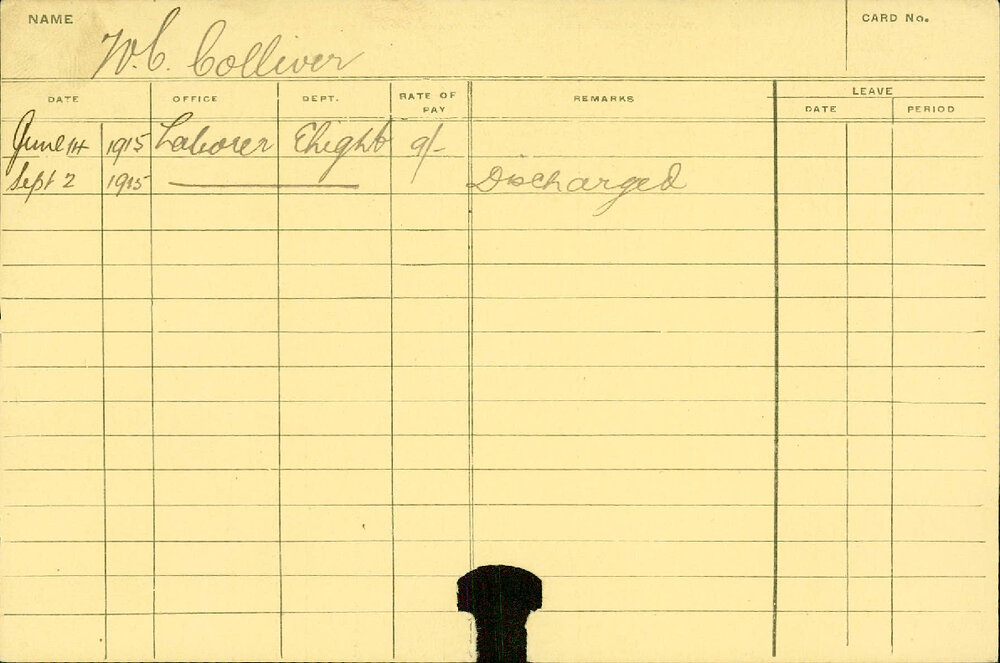 NAME
CARD No.
W. C. Colliver
DATE OFFICE DEPT. RATE OF PAY REMARKS LEAVE
DATE PERIOD
June 14 1915 Laborer Elright 9/-
Sept 2 1915 Discharged